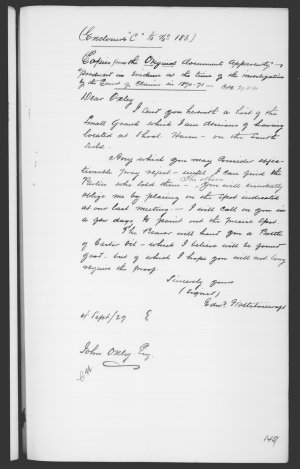 (Enclosure "C" to No 183)
Copies from the Original documents apparently
produced in evidence at the time of the investigation
by the Court of Claims in 1870-71 -
Dear Oxley
I send you herewith a list of the
Small Grants which I am desirous of having
located at Shoal Haven - on the South
Side.
Any which you may consider objec-
tionable may reject - until I can find the
Parties who hold them - The others You will eventually
oblige me by placing on the Spot indicated
at our last meeting - I will call on you in
a few days, to point out the precise Spot.
The Bearer will hand you a Bottle
of Castor Oil - which I believe will be found
good - but of which I hope you will not long
require the proof.
Sincerely yours
(Signed)
Edwd Wollstonecraft
4 Sept/27
John Oxley Esq.